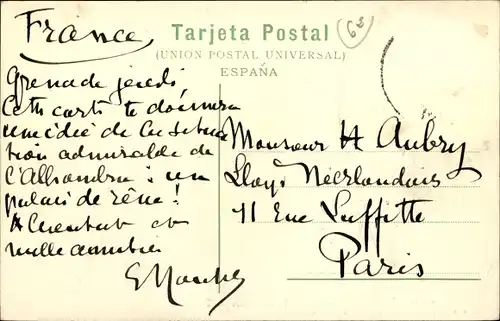 France
Tarjeta Postal
(UNION POSTAL UNIVERSAL)
ESPAÑA
Grenade jeudi
Cette carte te donnera
une idée de la situa
tion admirable de
l'Alhambra : un
palais de rêve!
A bientôt et
mille amitiés
Monsieur H Aubry
Lloyd Néerlandais
11 Rue Laffitte
Paris